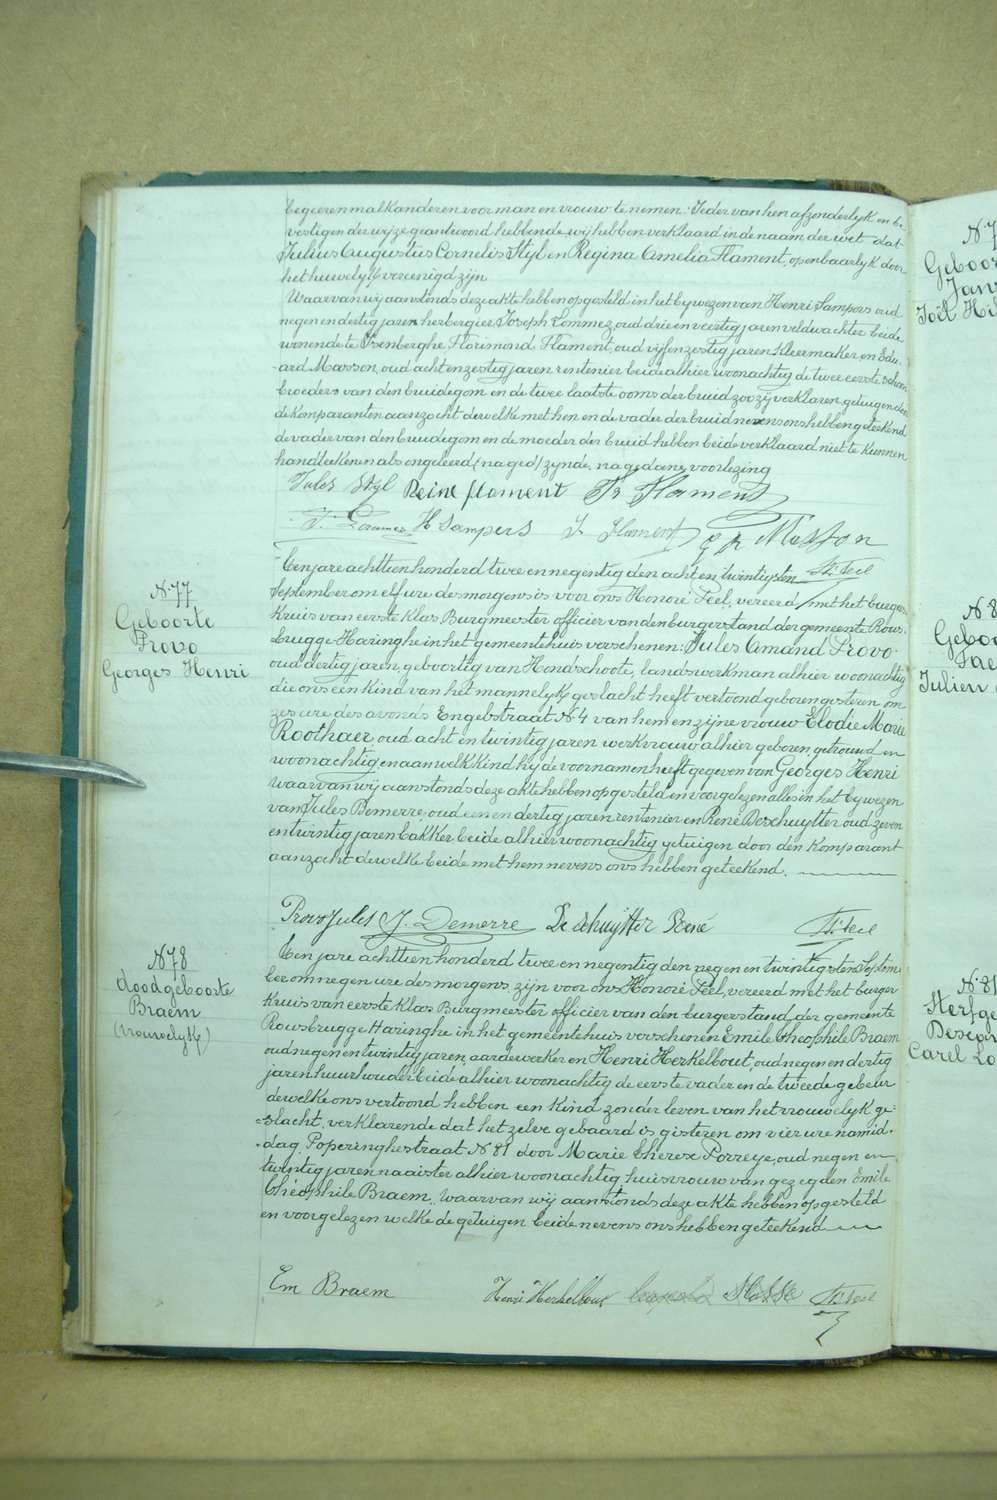 begeeren malkanderen voor man en vrouw te nemen. Ieder van hen afzonderlyk en be-
vestigender wyze geantwoord hebbende, wij hebben verklaard in de naam der wet dat
Julius Augustus Cornelis Styl en Regina Amelia Flament, openbaarlyk door
het huwelyk vereenigd zijn
Waarvan wij aanstonds deze akte hebben opgesteld in het bywezen van Henri Sampers oud
negen en dertig jaren herbergier Joseph Lommez, oud drie en veertig jaren veldwachter beide
wonende te Isenberghe Florimond Flament, oud vijf en zestig jaren kleermaker en Edu-
-ard Masson, oud acht en zestig jaren rentenier beide alhier woonachtig de twee eerste schoon
broeders van den bruidegom en de twee laatste ooms der bruid zoo zij verklaren, getuigen door
de komparanten aanzocht dewelke met hen en de vader der bruid nevens ons hebben geteekend
de vader van den bruidegom en de moeder der bruid hebben beide verklaard niet te kunnen
handteekenen als ongeleerd (na ged) zynde, na gedane voorlezing
Jules Styl Reine flament Fr Flament
H Sampers J. Flament Masson
H. Feel
Een jare achttien honderd twee en negentig den acht en twintigsten
September om elf ure des morgens is voor ons Honoré Feel, vereerd met het burger
Kruis van eerste Klas Burgmeester officier van den burgerstand der gemeente Rous-
brugge-Haringhe in het gemeentehuis verschenen: Jules Amand Provo.
oud dertig jaren, geboortig van Hondschoote, landswerkman alhier woonachtig
die ons een Kind van het mannelyk geslacht heeft vertoond geboren gisteren om
zes ure des avonds Engelstraat N 4 van hem en zijne vrouw Elodie Marie
Roothaer oud acht en twintig jaren werkvrouw alhier geboren, getrouwd en
woonachtig en aan welk Kind hy de voornamen heeft gegeven van Georges Henri
waarvan wij aanstonds deze akte hebben opgesteld en voorgelezen alles in het bywezen
van Jules Demerre, oud een en dertig jaren rentenier en René Deschuytter oud zeven
en twintig jaren bakker beide alhier woonachtig getuigen door den Komparant
aanzocht dewelke beide met hem nevens ons hebben geteekend.
Provo Jules J. Demerre De schuytter René H. Feel
Een jare achttien honderd twee en negentig den negen en twintigsten Septem-
ber om negen ure des morgens, zijn voor ons Honoré Feel, vereerd met het burger
Kruis van eerste Klas Burgmeester officier van den burgerstand, der gemeente
Rousbrugge Haringhe in het gemeentehuis verschenen Emile Theophile Braem
oud negen en twintig jaren, aardewerker en Henri Herkelbout, oud negen en dertig
jaren huurhouder beide alhier woonachtig de eerste vader en de tweede gebeur
dewelke ons vertoond hebben een kind zonder leven van het vrouwelyk ge-
=slacht, verklarende dat het zelve gebaard is gisteren om vier ure namid-
-dag, Poperinghestraat N 81 door Marie Therese Porreye, oud negen en
twintig jaren naaister alhier woonachtig huisvrouw van gezegden Emile
Théophile Braem, waarvan wij aanstonds deze akte hebben opgesteld
en voorgelezen welke de getuigen beide nevens ons hebben geteekend
Em Braem Henri Herkelbout H. Feel
N. 77
Geboorte
Provo
Georges Henri
N 78
doodgeboorte
Braem
(vrouwelyk)
N 7
Geboor
Jans
Joël Hi
N. 8
Geboo
Julien
N. 81
Sterfge
Carel Lo